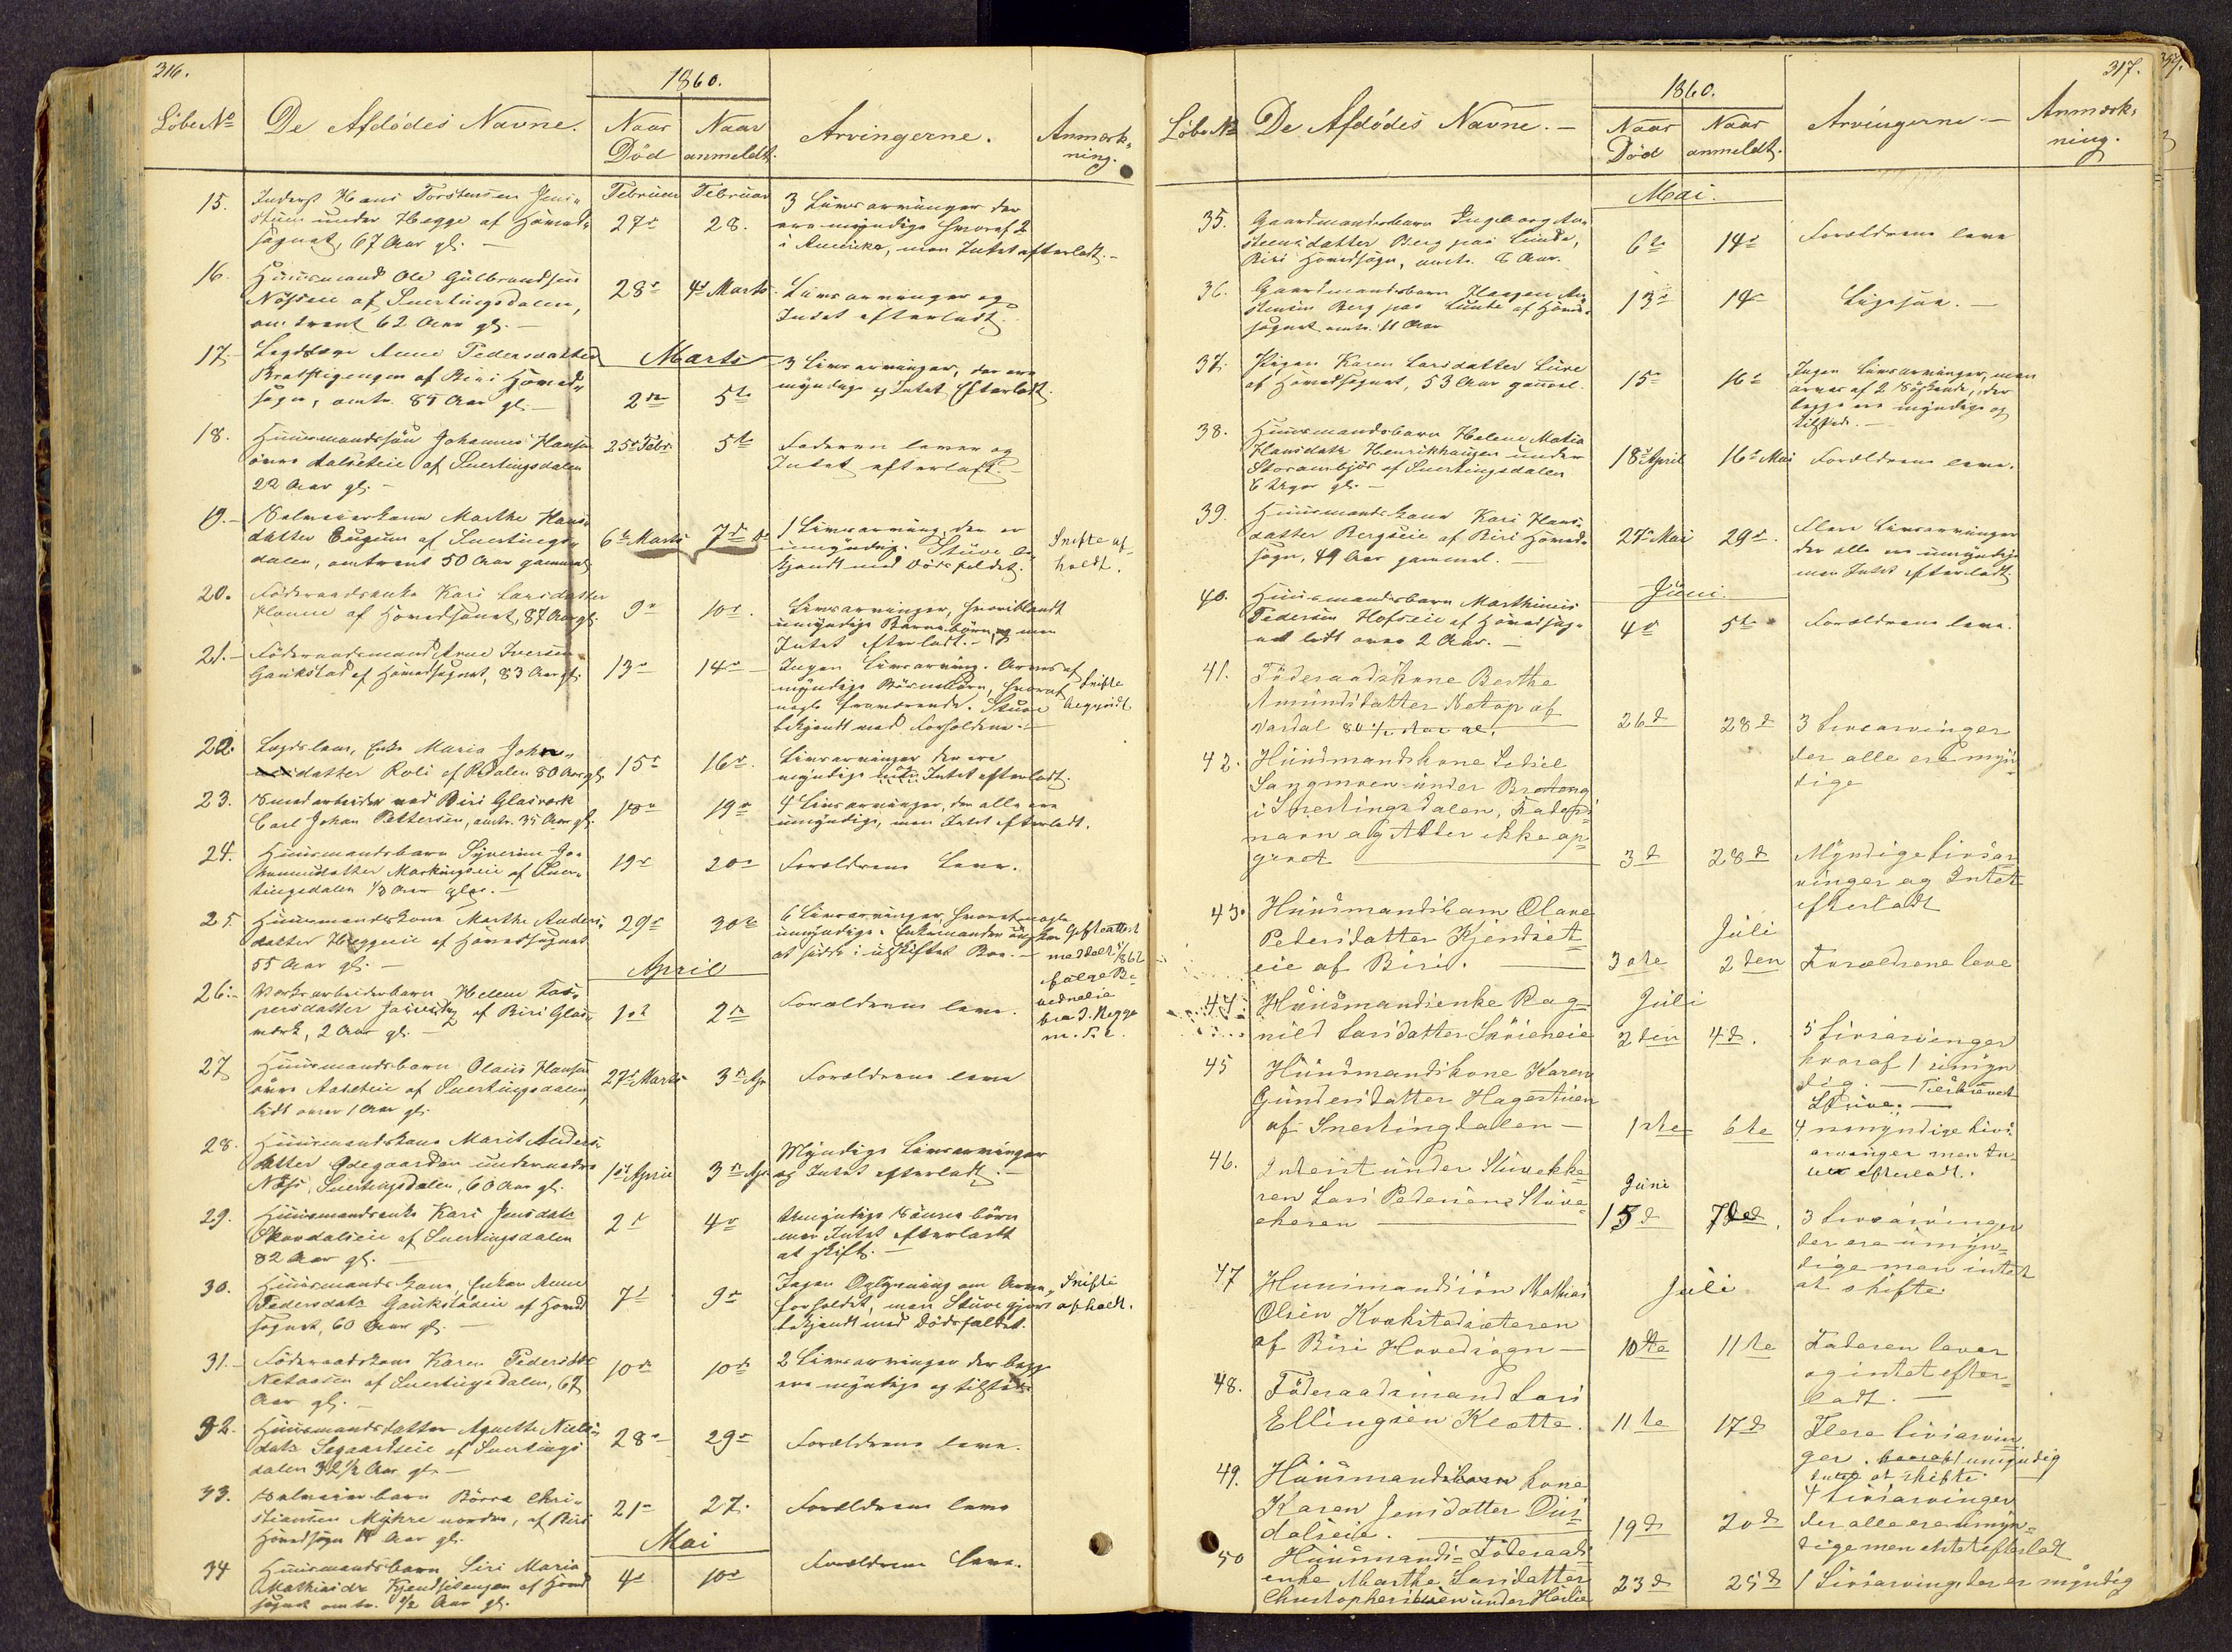 316.
1860.
Löbe No
De Afdödes Navne.
Naar Död
Naar anmeldt.
Arvingerne.
Anmærkning.
15. Inderst Hans Torstensen Jens-
stuen under Hegge af Hoved-
sognet, 67 Aar gl. —
Februar Februar
27de 28.
3 Livsarvinger der
ere myndige hvoraf 2
i Amerika, men Intet efterladt. —
16. Huusmand Ole Gulbrandsen
Nösseie af Snertingsdalen,
omtrent 62 Aar gl. —
28de 4de Marts.
Livsarvinger og
Intet efterladt.
17. Lægdslem Anne Pedersdatter
af Biri Hoved-
sogn, omtr. 85 Aar gl. —
Marts
2den 5te
3 Livsarvinger, der ere
myndige og Intet Efterladt.
18. Huusmandssön Johannes Hansen
övre af Snertingsdalen
22 Aar gl. —
25de Febr. 5te
Faderen lever og
Intet efterladt. —
19. — Marthe Hans-
datter Eugum af Snertings-
dalen, omtrent 50 Aar gammel
6te Marts 7de
1 Livsarving der er
umyndig. Stuve be-
kjendt med Dödsfaldet.
Skifte af-
holdt.
20. Föderaadsenke Kari Larsdatter
af Hovedsognet, 87 Aar gl.
9de 10de.
Livsarvinger, hvoriblandt
umyndige Barnebörn, men
Intet efterladt. —
21. — Föderaadsmand Arne Iversen
Gaukstad af Hovedsognet, 83 Aar gl.
13de 14de
Ingen Livsarving. Arves af
myndige Börnebörn, hvoraf
nogle fraværende. Stuve
bekjendt med Forholdene. —
Skifte
begyndt.
22. Lægdslem, Enke Maria John-
datter Roli af Redalen 80 Aar gl.
15de 16de.
Livsarvinger der ere
myndige og Intet efterladt.
23. Smedarbeider ved Biri Glasværk
Carl Johan Pettersen, omtr. 35 Aar gl.
18de 19de
4 Livsarvinger, der alle ere
umyndige, men Intet efterladt.
24. Huusmandsbarn Syverine Jo-
hannesdatter af Sner-
tingsdalen 1/3 Aar gl. —
19de 20de
Forældrene Leve.
25. Huusmandskone Marthe Anders-
datter Heggeeie af Hovedsognet
55 Aar gl. —
29de 30te
6 Livsarvinger, hvoraf nogle
umyndige. Enkemanden önsker
at sidde i uskiftet Boe. —
meddelt
26. — Værksarbeiderbarn Helene Kas-
persdatter af Biri Glas-
værk, 2 Aar gl. —
April
1ste 2den
Forældrene leve.
27 Huusmandsbarn Olaus Hansen
övre af Snertingsdalen,
lidt over 1 Aar gl.
27de Marts 3de Apr
Forældrene leve
28. Huusmandskone Marit Anders-
datter Ödegaarden under nedre
Næss, Snertingsdalen, 60 Aar gl.
1ste April 3de Apr
Myndige Livsarvinger
og Intet efterladt. —
29. Huusmandsenke Kari Jensdatr
af Snertingsdalen
82 Aar gl. —
2de 4de
Umyndige börn
men Intet efterladt
at skifte. —
30. Huusmands Kone, Enken Anne
Pedersdatr Gaukstadeie af Hoved
sognet, 60 Aar gl. —
7de 9de
Ingen Oplysning om Arve-
forholdet, men Stuve gjort
bekjendt med Dödsfaldet.
Skifte
afholdt.
31. — Föderaadskone Karen Pedersdtr
af Snertingsdalen, 67
Aar gl. —
10de 10de
2 Livsarvinger der begge
ere myndige og tilstede
32. Huusmandsdatter Agnethe Niels-
datr Segaardseie af Snertings
dalen 32 1/2 Aar gl. —
28de 29de
Forældrene leve.
33. barn Börre Chri-
stiansen Myhre nordre, af Biri
Hovedsogn Aar gl.
21de 27.
Forældrene leve
34 Huusmandsbarn Siri Maria
Mathiasdr af Hoved
sognet omtr. 1/2 Aar gl.
Mai
4de 10de
Forældrene Leve.
317.
1860.
Löbe No
De Afdödes Navne. —
Naar Död
Naar anmeldt.
Arvingerne —
Anmærkning.
Mai.
35. Gaardmandsbarn Ingeborg An-
stensdatter Berg paa Linde,
Biri Hovedsogn, omtr. 6 Aar.
6te 14de
Forældrene leve
36. Gaardmandsbarn Haagen An-
stensen Berg paa Linde af Hoved-
sognet omtr. 11 Aar
13de 14de
Ligesaa. —
37. Pigen Karen Larsdatter Lure
af Hovedsognet, 53 Aar gammel.
15de 16de
Ingen Livsarvinger, men
arves af 2 Söskende, der
begge ere myndige og
tilstede. —
38. Huusmandsbarn Helene Matia
Hansdatr Henrikhaugen under
af Snertingsdalen
6 Uger gl. —
18de April 16de Mai
Forældrene leve.
39. Huusmands Kone Kari Hans-
datter Bergseie af Biri Hoved-
sogn, 49 Aar gammel. —
27de Mai 29de.
Flere Livsarvinger
der alle ere umyndige
men Intet efterladt
40. Huusmandsbarn Marthinus
Pedersen Hofseie af Hovedsog-
net lidt over 2 Aar. —
Juni.
4de 5te
Forældrene leve.
41. Föderaadskone Berthe
Amundsdatter Netop af
Vardal 80 1/2 Aar gl.
26d 28d
3 Livsarvinger
der alle ere myn-
dige
42. Huusmandskone Sidsel
Sangmoen under
i Snertingsdalen, Faders
navn og Alder ikke op-
givet
3d 28d
Myndige Livsar
vinger og Intet
efterladt
43. Huusmandsbarn Olave
Pedersdatter Kjendset
eie af Biri. —
30te
Juli
2den
Forældrene leve
44. Huusmandsenke Rag-
nild Larsdatter Skrieneie
Juli
2den 4d.
5 Livsarvinger
hvoraf 1 umyn
dig. — Tilskrevet
Stuve. —
45 Huusmandskone Karen
Gundersdatter Hagestuen
af Snertingdalen —
1ste 6te
4 umyndige Livs
arvinger men In-
tet efterladt.
46. Inderst under Stuvekke-
ren Lars Pedersen Stuve-
ekeren —
Juni
15d 7ded.
3 Livsarvinger
der ere umyn-
dige men intet
at skifte
47 Huusmandssön Mathias
Olsen Kvakstadsæteren
af Biri Hovedsogn —
Juli
10de 11te
Faderen lever
og intet efter-
ladt. —
48. Föderaadsmand Lars
Ellingsen Klætte.
11te 17d
Flere Livsarvin-
ger. hvoraf 1 umyndig
Intet at skifte
49. Huusmands kone
Karen Jensdatter
dalseie. —
19d 20d
4 Livsarvinger
der alle ere umyn-
dige men intet efterladt
50 Huusmands- Föderaads
enke Marthe Larsdatter
under
23d 25d
1 Livsarving, der er myndig